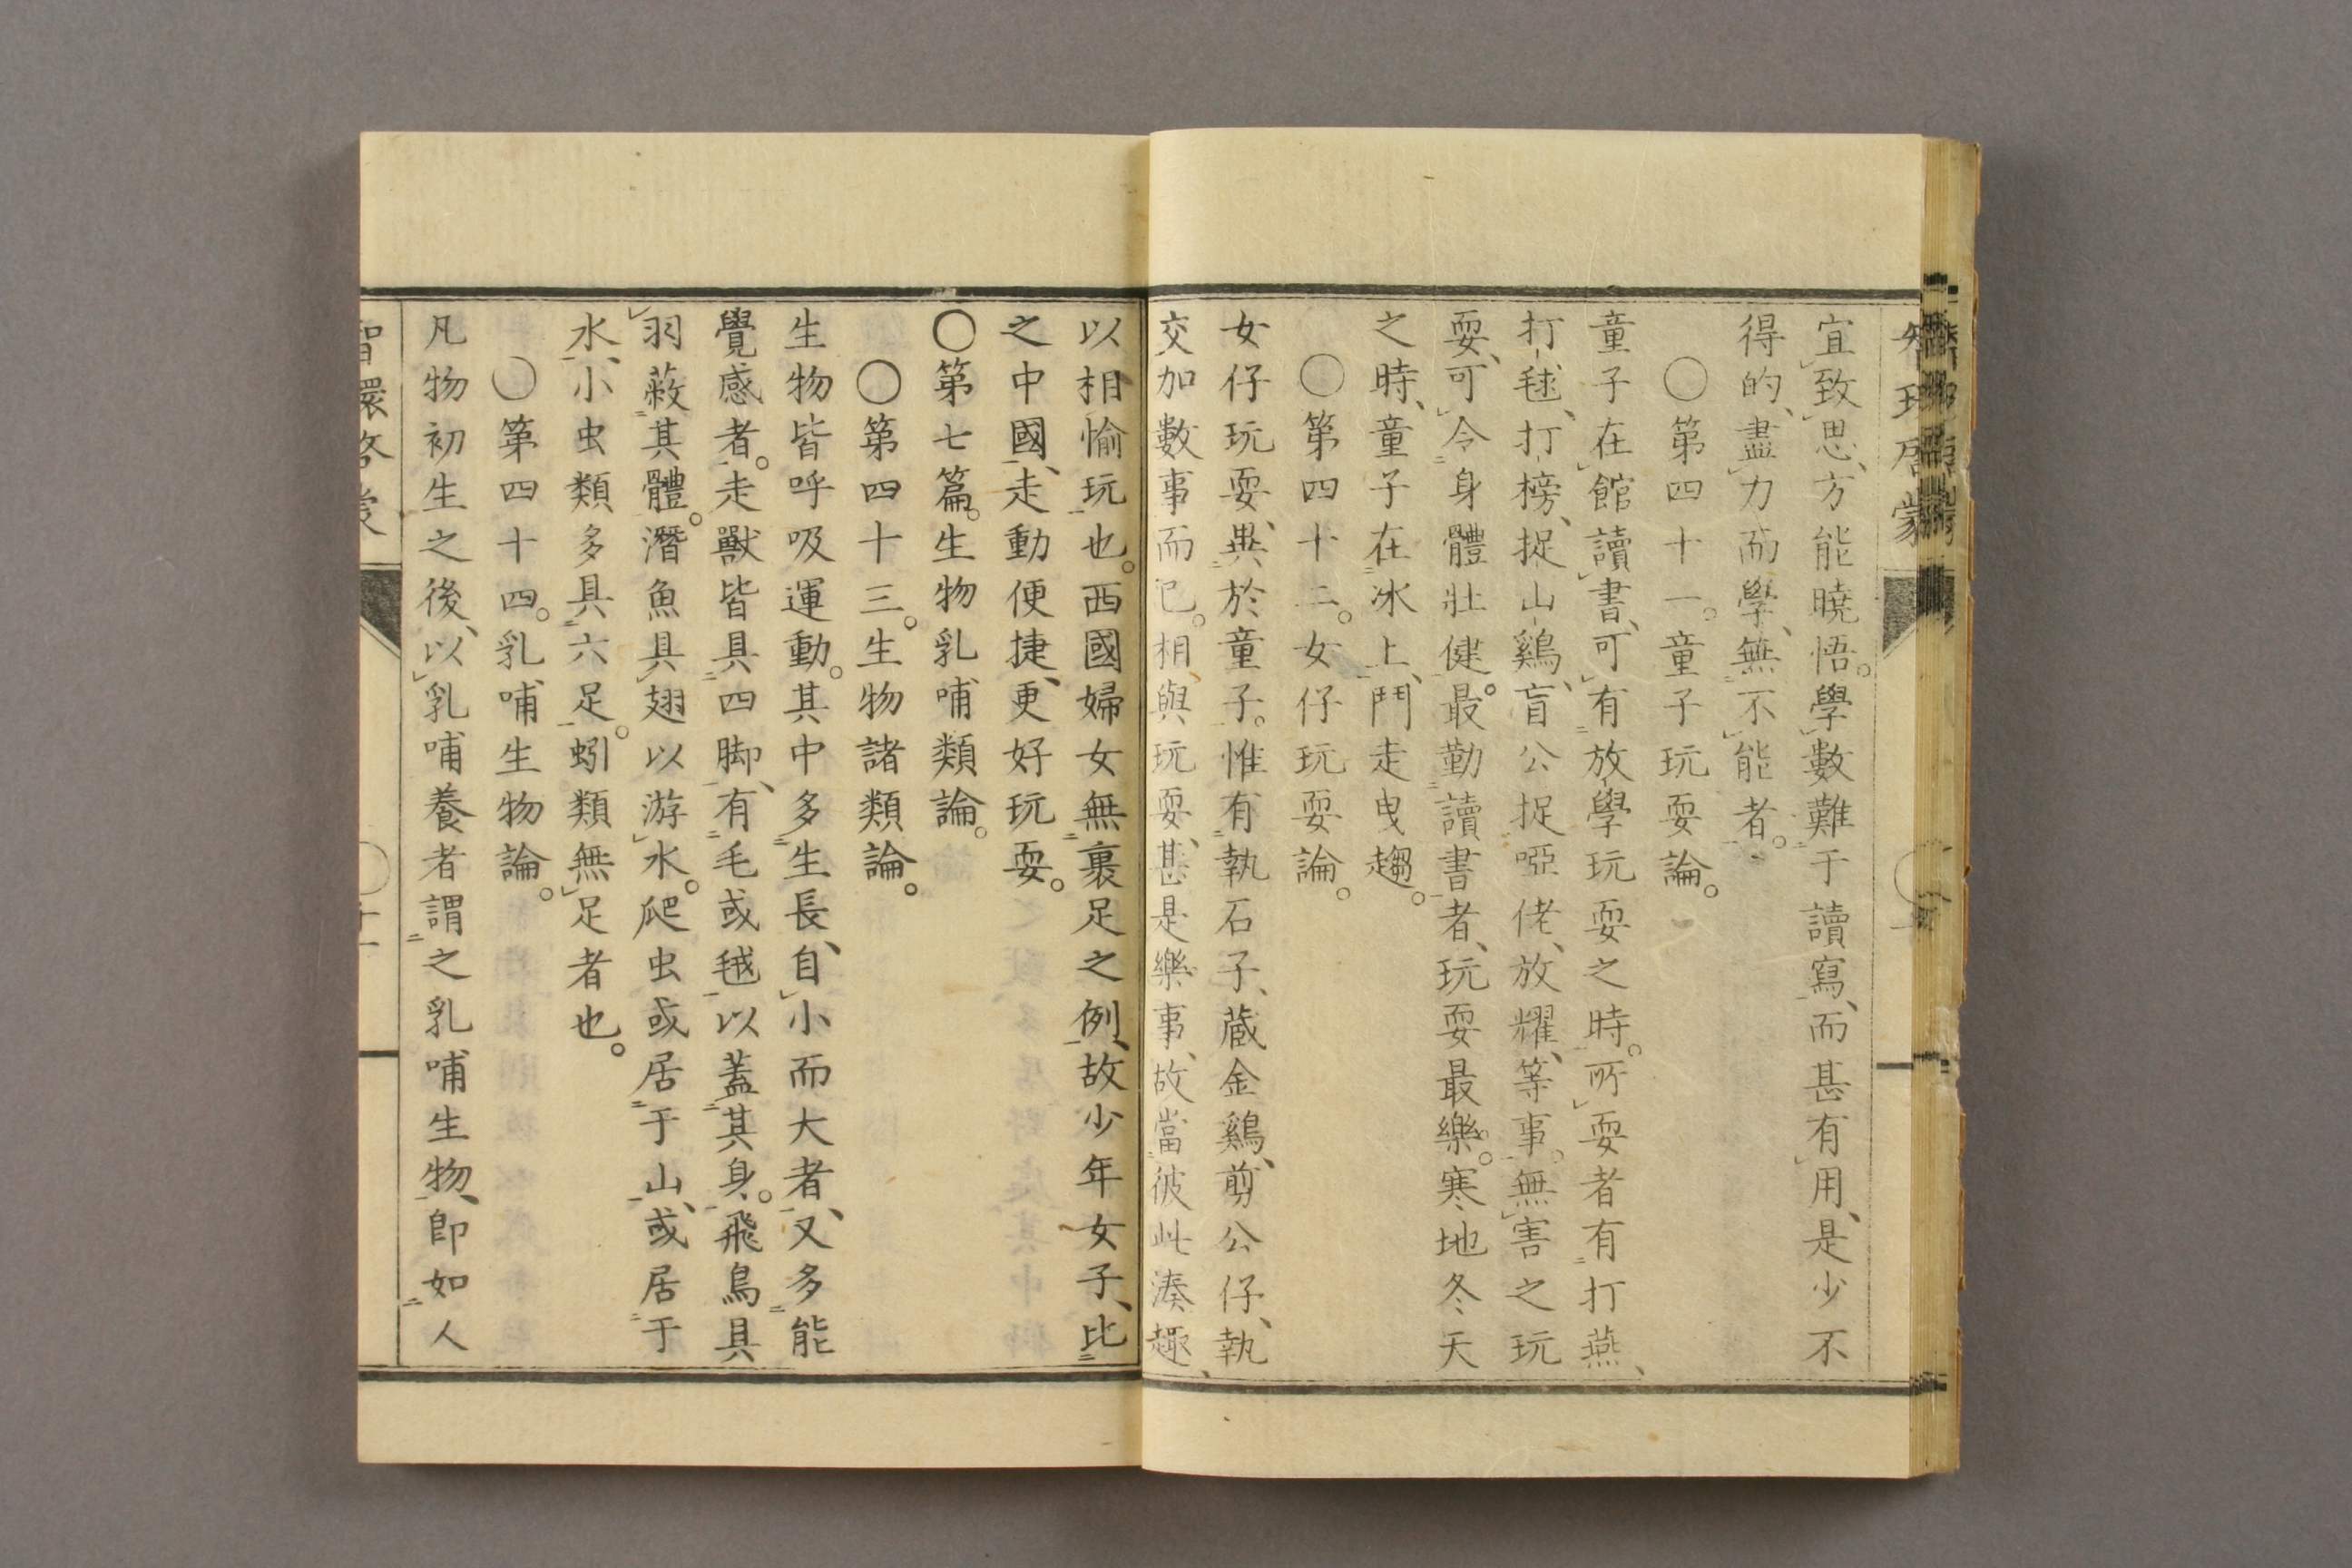 宜致思、方能曉悟。學數難于讀寫、而甚有用、是少不
得的、盡力而學、無不能者。
○第四十一。童子玩耍論。
童子在館讀書、可有放學玩耍之時。所耍者有打燕、
打毬、打榜、捉山鷄、盲公捉啞佬、放耀、等事。無害之玩
耍、可令身體壯健。最勤讀書者、玩耍最樂。寒地冬天
之時、童子在冰上、鬥走曳趨。
○第四十二。女仔玩耍論。
女仔玩耍、異於童子。惟有執石子、蔵金鷄、剪公仔、執
交加數事而已。相與玩耍、甚是樂事、故當彼此湊趣、
以相愉玩也。西國婦女無裹足之例、故少年女子、比
之中國、走動便捷、更好玩耍。
○第七篇。生物乳哺類論。
○第四十三。生物諸類論。
生物皆呼吸運動。其中多生長、自小而大者、又多能
覺感者。走獸皆具四脚、有毛或毧以蓋其身。飛鳥具
羽蔽其體。潛魚具翅以游水。爬虫或居于山、或居于
水、小虫類多具六足。蚓類無足者也。
○第四十四。乳哺生物論。
凡物初生之後、以乳哺養者謂之乳哺生物、卽如人
智環啓蒙